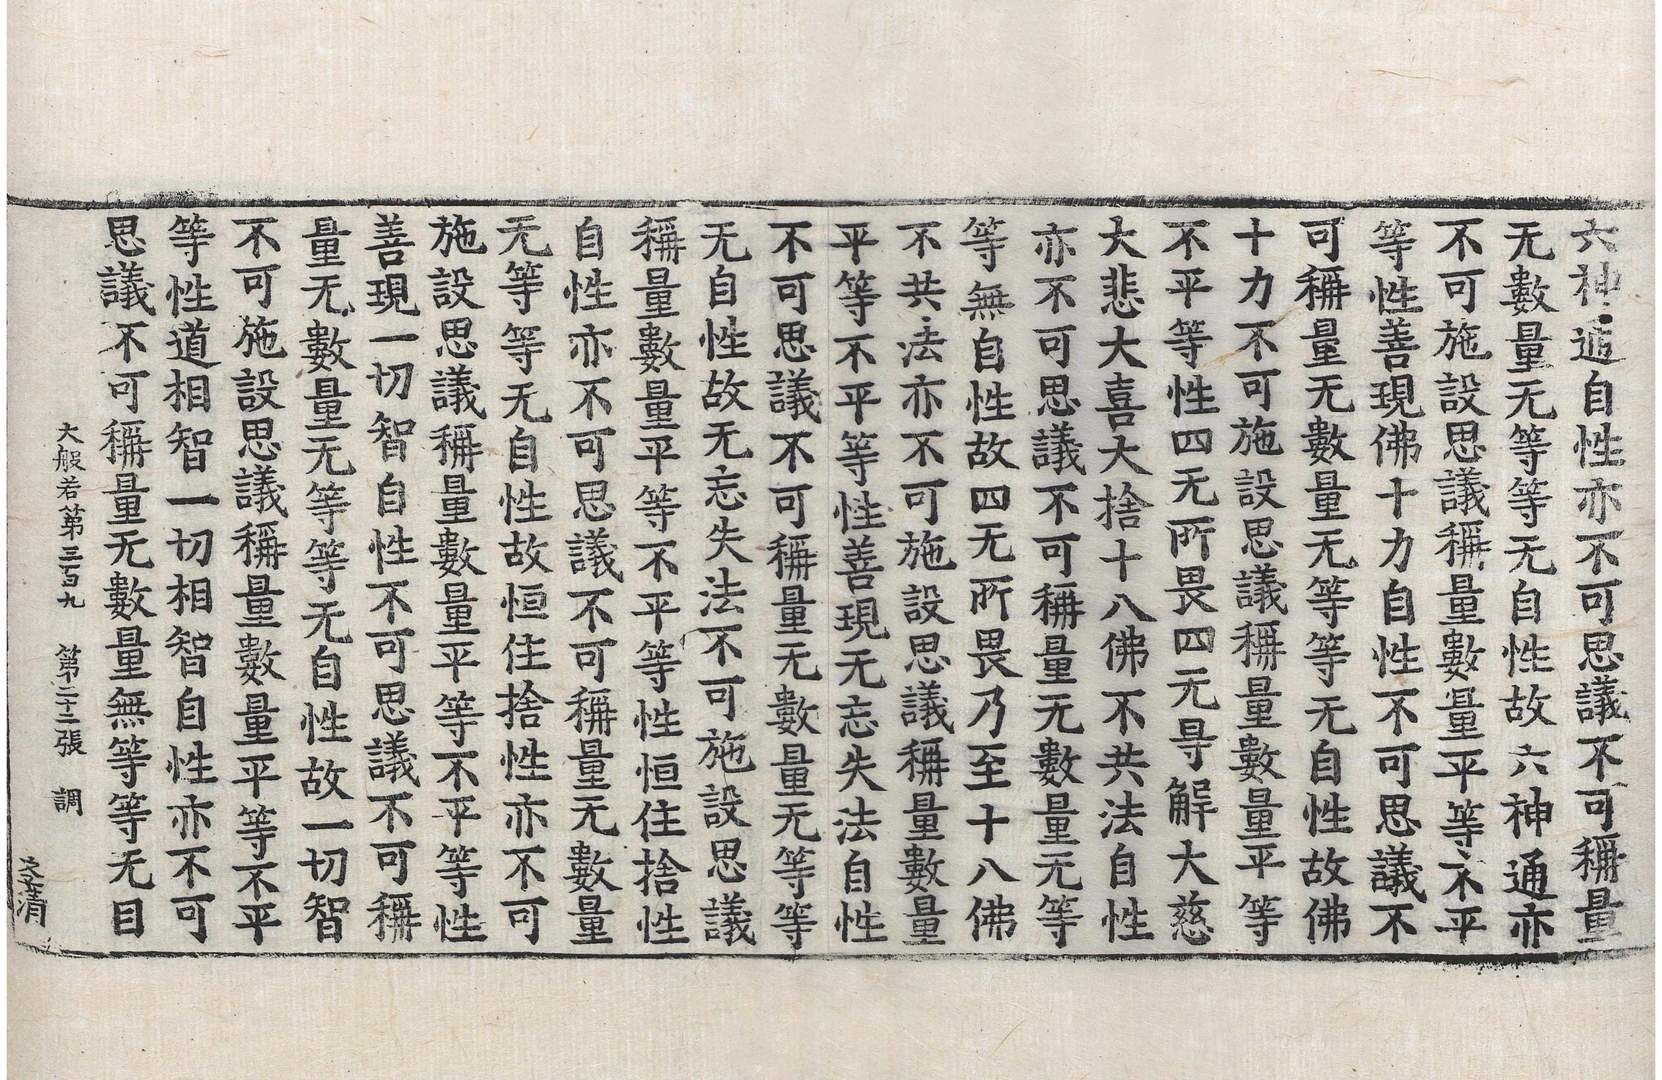 六神通自性亦不可思議不可稱量
无數量无等等无自性故六神通亦
不可施設思議稱量數量平等不平
等性善現佛十力自性不可思議不
可稱量无數量无等等无自性故佛
十力不可施設思議稱量數量平等
不平等性四无所畏四无㝵解大慈
大悲大喜大捨十八佛不共法自性
亦不可思議不可稱量无數量无等
等無自性故四无所畏乃至十八佛
不共法亦不可施設思議稱量數量
平等不平等性善現无忘失法自性
不可思議不可稱量无數量无等等
无自性故无忘失法不可施設思議
稱量數量平等不平等性恒住捨性
自性亦不可思議不可稱量无數量
无等等无自性故恒住捨性亦不可
施設思議稱量數量平等不平等性
善現一切智自性不可思議不可稱
量无數量无等等无自性故一切智
不可施設思議稱量數量平等不平
等性道相智一切相智自性亦不可
思議不可稱量无數量無等等无自
大般若第三百九 第二十二張 調